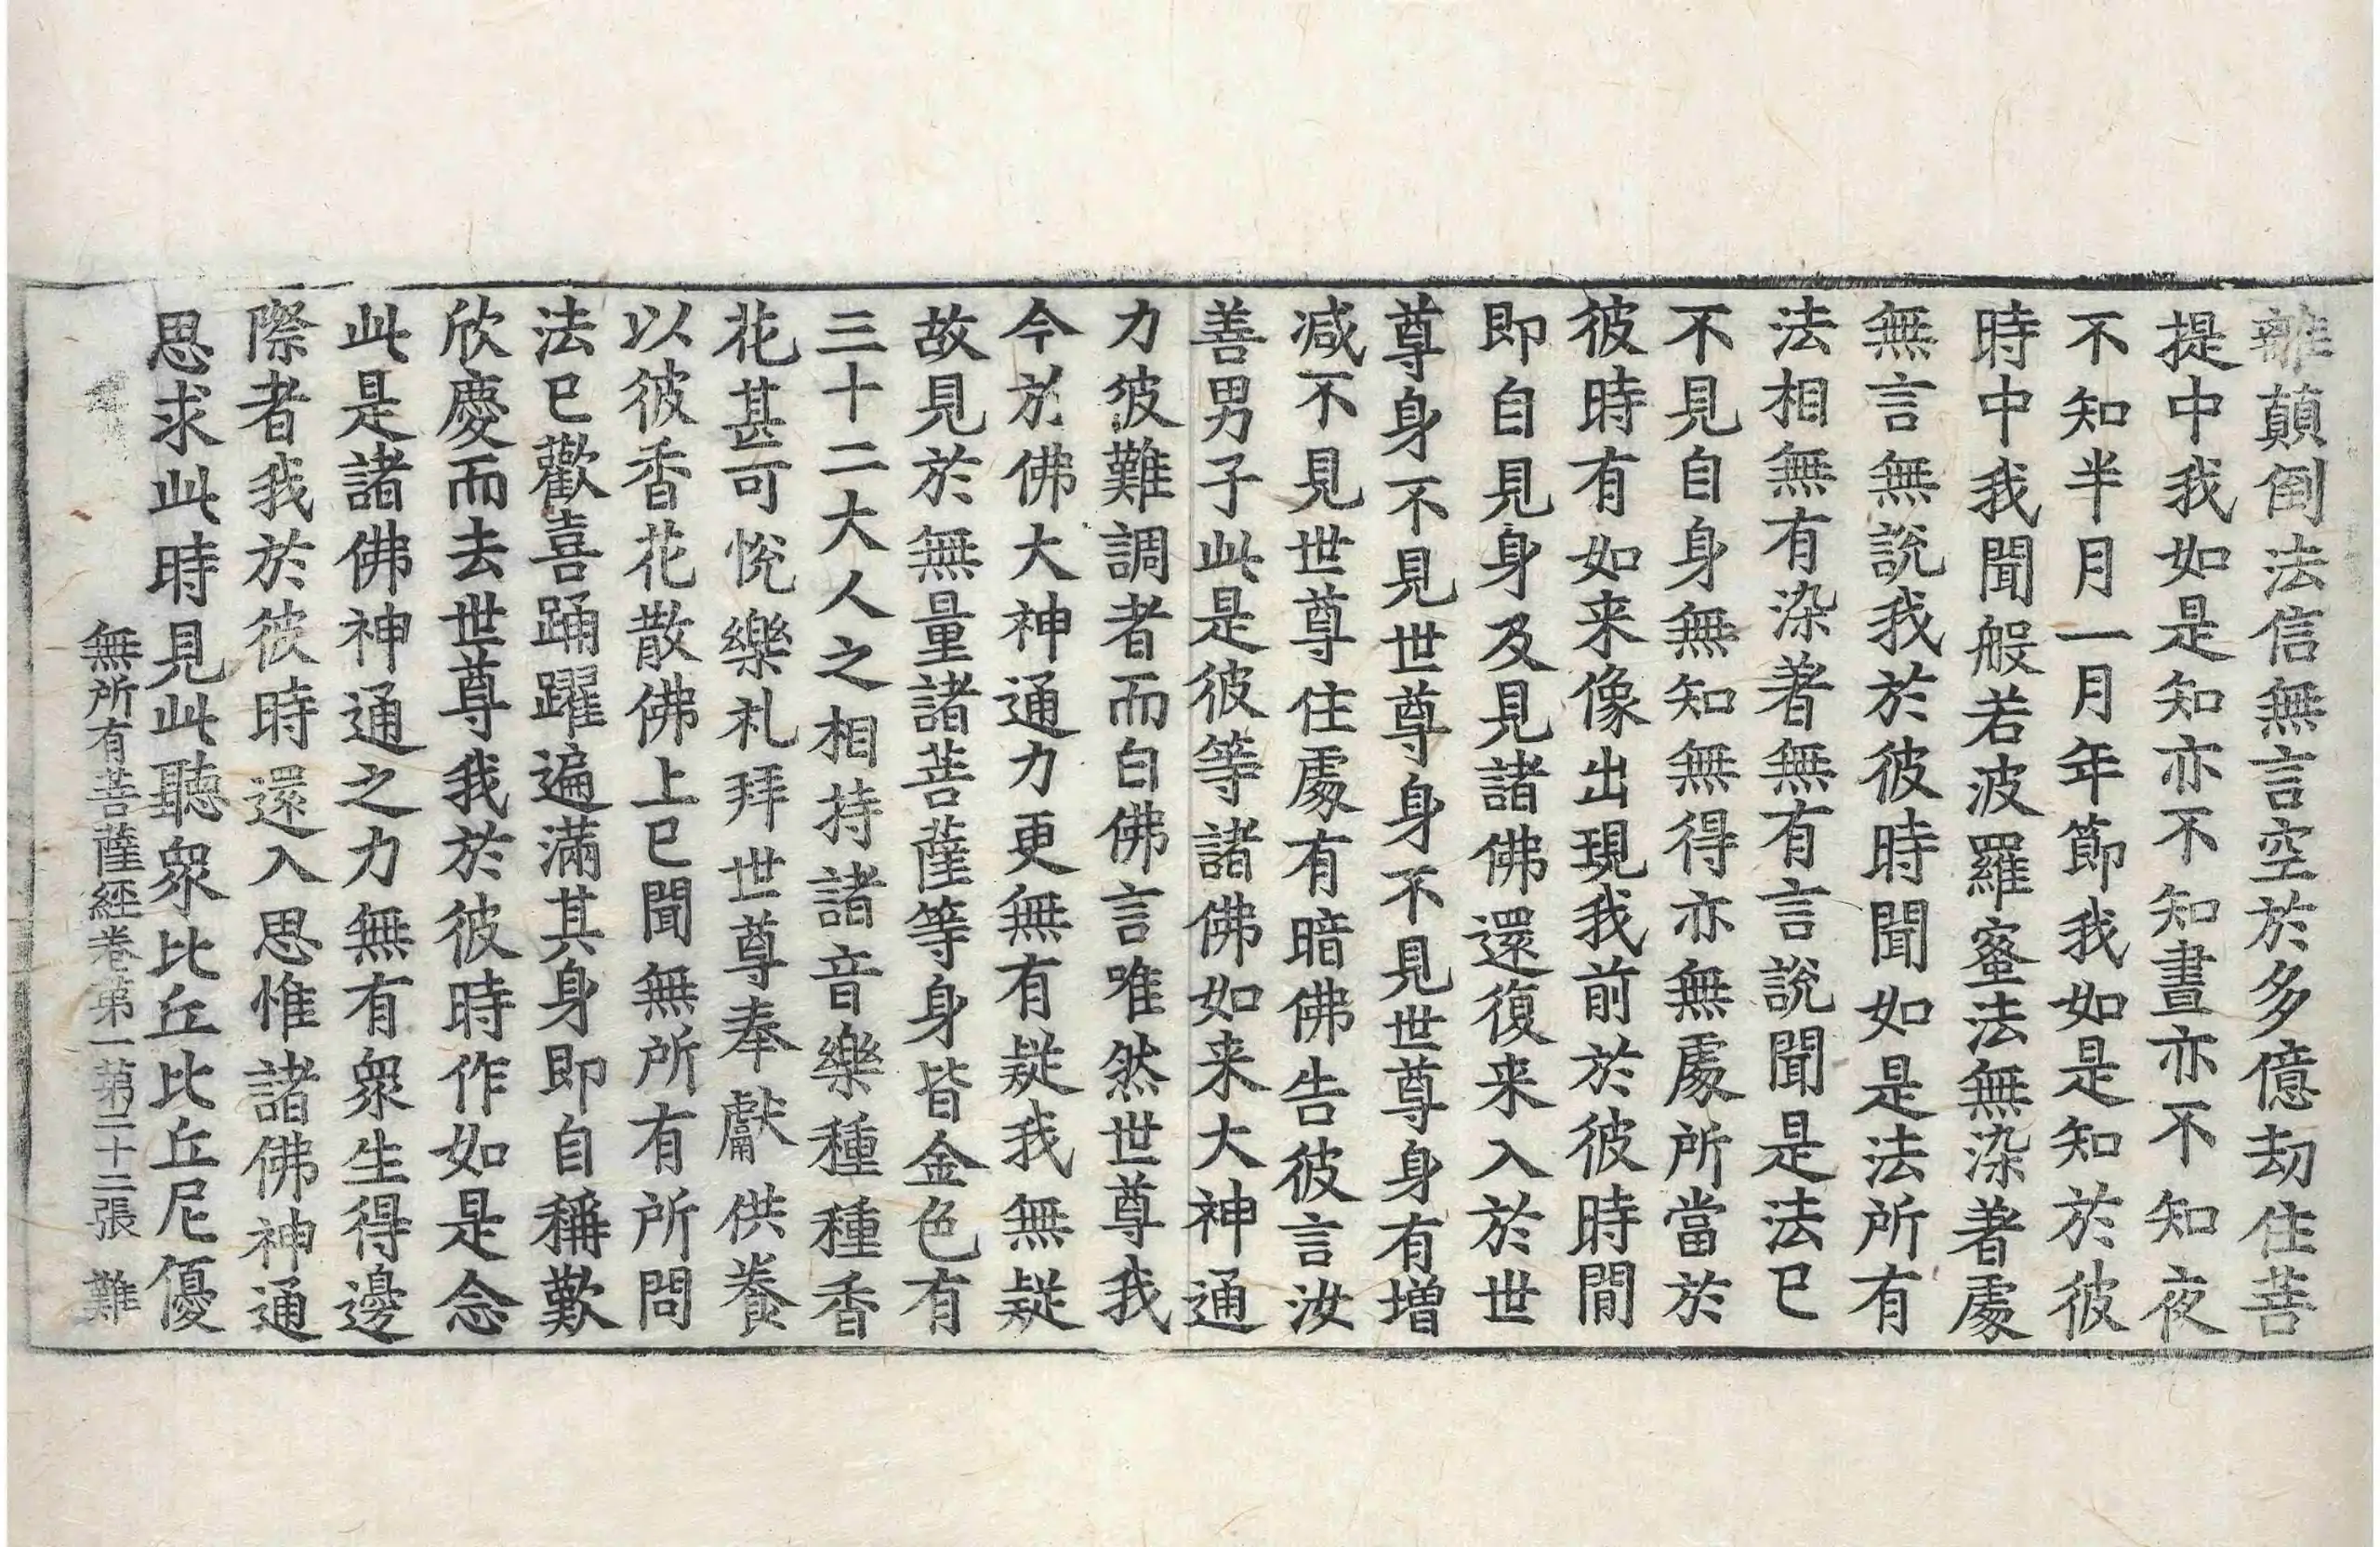 離顛倒法信無言空於多億劫住菩
提中我如是知亦不知晝亦不知夜
不知半月一月年節我如是知於彼
時中我聞般若波羅蜜法無染著處
無言無說我於彼時聞如是法所有
法相無有染著無有言說聞是法已
不見自身無知無得亦無處所當於
彼時有如来像出現我前於彼時間
即自見身及見諸佛還復来入於世
尊身不見世尊身不見世尊身有增
减不見世尊住處有暗佛告彼言汝
善男子此是彼等諸佛如来大神通
力彼難調者而白佛言唯然世尊我
今於佛大神通力更無有疑我無疑
故見於無量諸菩薩等身皆金色有
三十二大人之相持諸音樂種種香
花甚可悅樂礼拜世尊奉獻供養
以彼香花散佛上已聞無所有所問
法已歡喜踊躍遍滿其身即自稱歎
欣慶而去世尊我於彼時作如是念
此是諸佛神通之力無有衆生得邊
際者我於彼時還入思惟諸佛神通
思求此時見此聽衆比丘比丘尼優
無所有菩薩經卷第一第二十二張 難